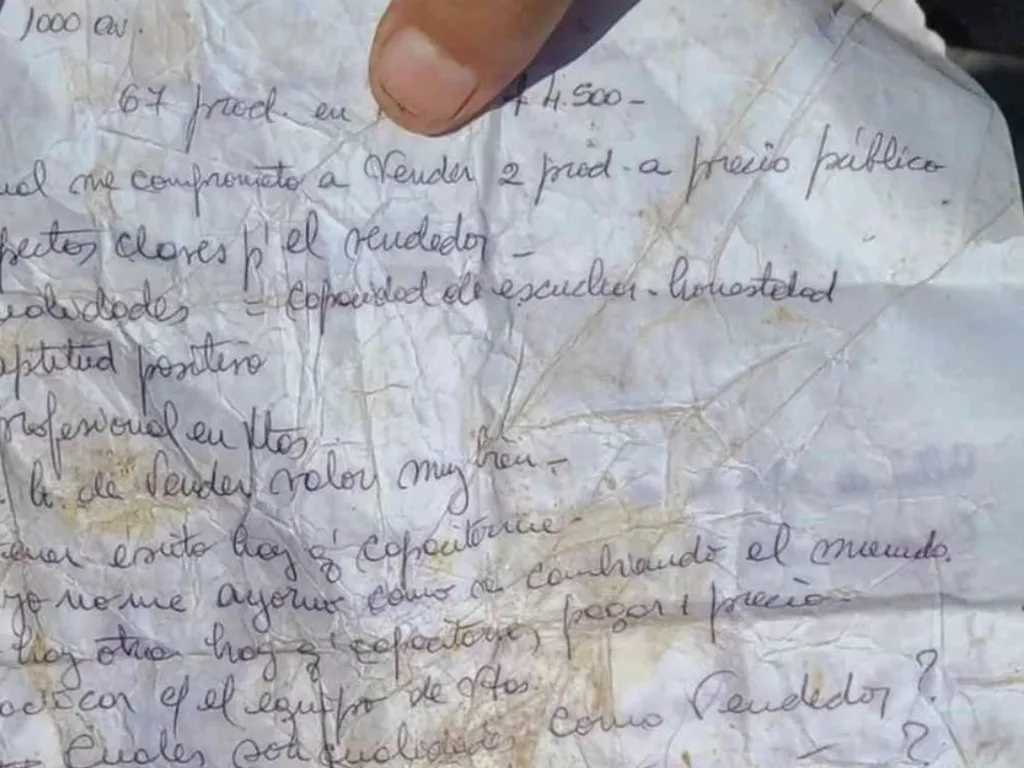 1000 av.
67 prod. en 4.500-
me comprometo a Vender 2 prod. a precio público
claves p' el vendedor -
= capacidad de escuchar - honestidad
aptitud positiva
profesional en Vtas
de Vender valor muy bien -
éxito hay q' capacitarme
yo no me ayorno como va cambiando el mundo.
hay otra hay q' capacitarse, pagar 1 precio
el equipo de Vtas.
Cuales son cualidades como Vendedor ?
?